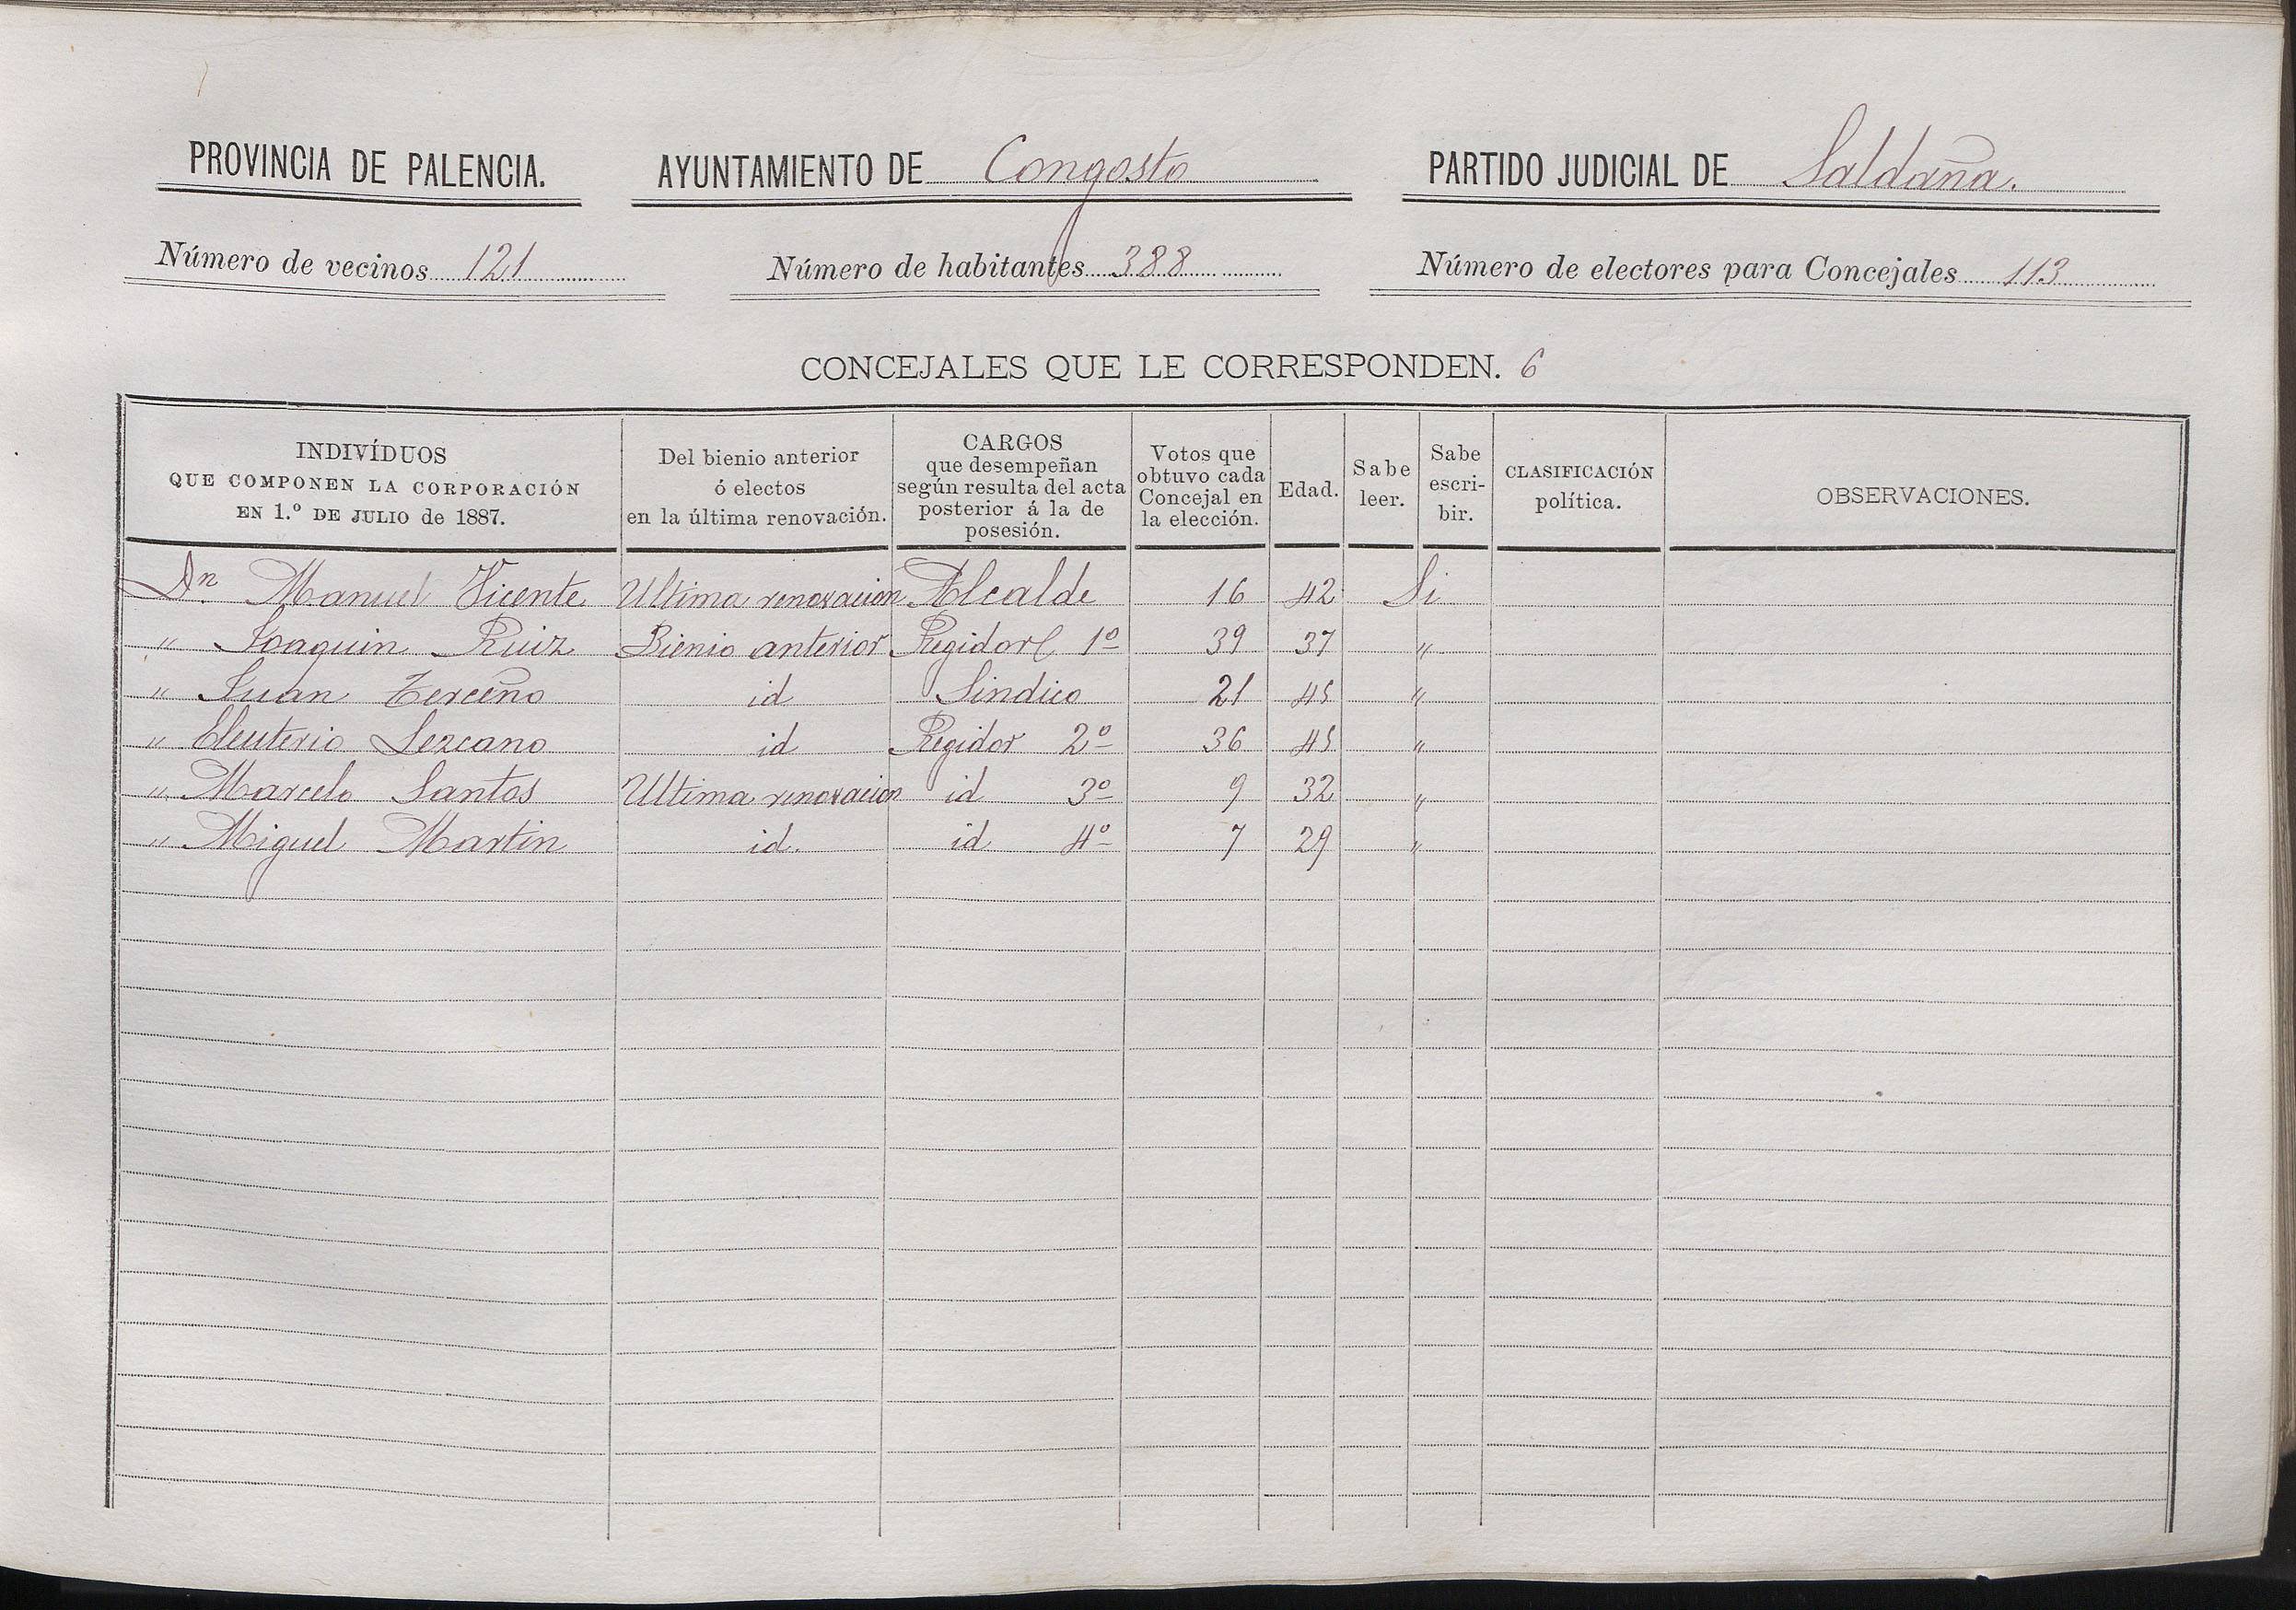 PROVINCIA DE PALENCIA. AYUNTAMIENTO DE Congosto PARTIDO JUDICIAL DE Saldaña.
Número de vecinos 121 Número de habitantes 388 Número de electores para Concejales 113
CONCEJALES QUE LE CORRESPONDEN. 6
INDIVÍDUOS
QUE COMPONEN LA CORPORACIÓN
EN 1.º DE JULIO de 1887.
Del bienio anterior
ó electos
en la última renovación.
CARGOS
que desempeñan
según resulta del acta
posterior á la de
posesión.
Votos que
obtuvo cada
Concejal en
la elección.
Edad.
Sabe
leer.
Sabe
escri-
bir.
CLASIFICACIÓN
política.
OBSERVACIONES.
Dn. Manuel Vicente Ultima renovacion Alcalde 16 42 Si
" Joaquin Ruiz Bienio anterior Regidor 1º 39 37 "
" Juan Terceño id Sindico 21 45 "
" Eleuterio Lezcano id Regidor 2º 36 45 "
" Marcelo Santos Ultima renovacion id 3º 9 32 "
" Miguel Martin id. id 4º 7 29 "